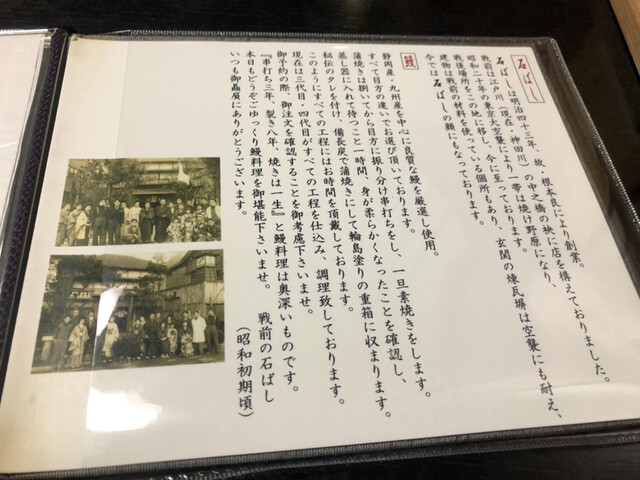 石ばし
石ばしは明治四十三年、故・根本良により創業。
戦前は江戸川（現在・神田川）の中之橋の袂に店を構えておりました。
昭和二十年の東京大空襲により一帯は焼け野原になり、
戦後場所をこの地に移し、今に至っております。
建物は戦前の材料を使っている個所もあり、玄関の煉瓦塀は空襲にも耐え、
今では石ばしの顔にもなっております。
鰻
静岡産・九州産を中心に良質な鰻を厳選し使用。
すべて目方の違いでお選び頂いております。
蒲焼きは捌いてから目方に振り分け串打ちをし、一旦素焼きをします。
蒸し器に入れて待つこと一時間、身が柔らかくなったことを確認し、
秘伝のタレを付け、備長炭で蒲焼きにして輪島塗りの重箱に収まります。
このようにすべての工程にはお時間を頂戴しております。
現在は三代目・四代目がすべての工程を仕込み、調理致しております。
御予約の際、御注文を確認することを御考慮下さいませ。
『串打ち三年、裂き八年、焼きは一生』と鰻料理は奥深いものです。
本日もどうぞごゆっくり鰻料理を御堪能下さいませ。
いつも御贔屓にありがとうございます。
戦前の石ばし
（昭和初期頃）